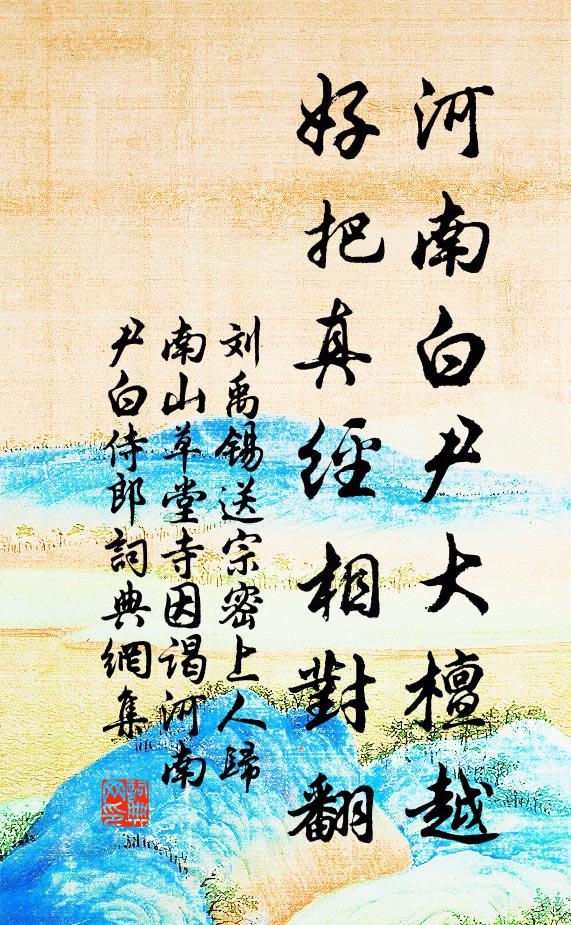 河南白尹大檀越
好把真經相對翻
刘禹錫送宗密上人歸
南山草堂寺因謁河南
尹白侍郎詞典網集